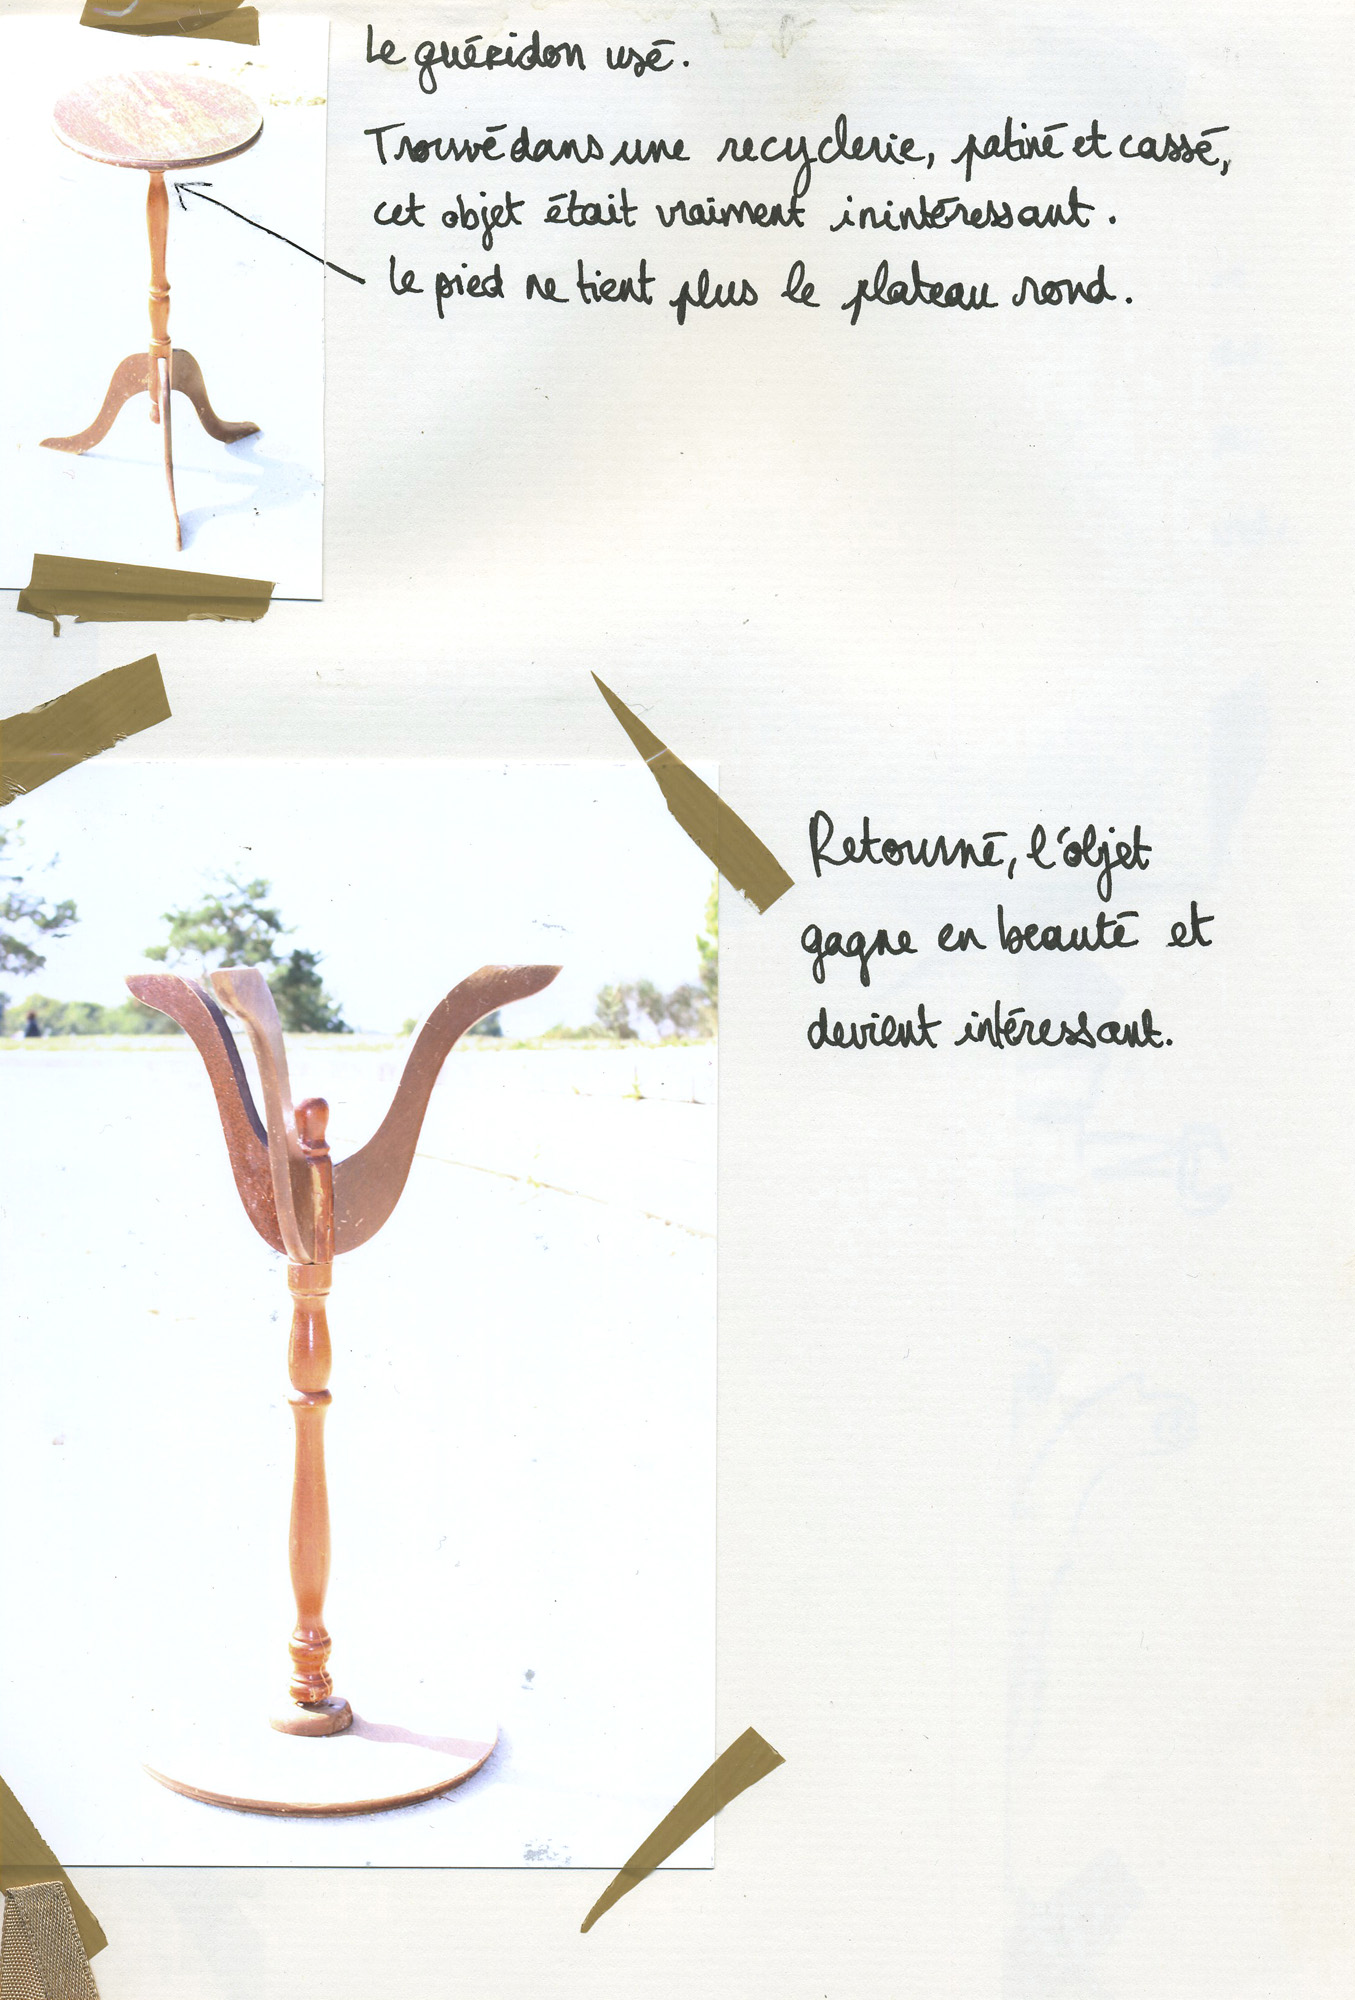 Le guéridon usé.
Trouvé dans une recyclerie, patiné et cassé,
cet objet était vraiment inintéressant.
Le pied ne tient plus le plateau rond.
Retourné, l'objet
gagne en beauté et
devient intéressant.